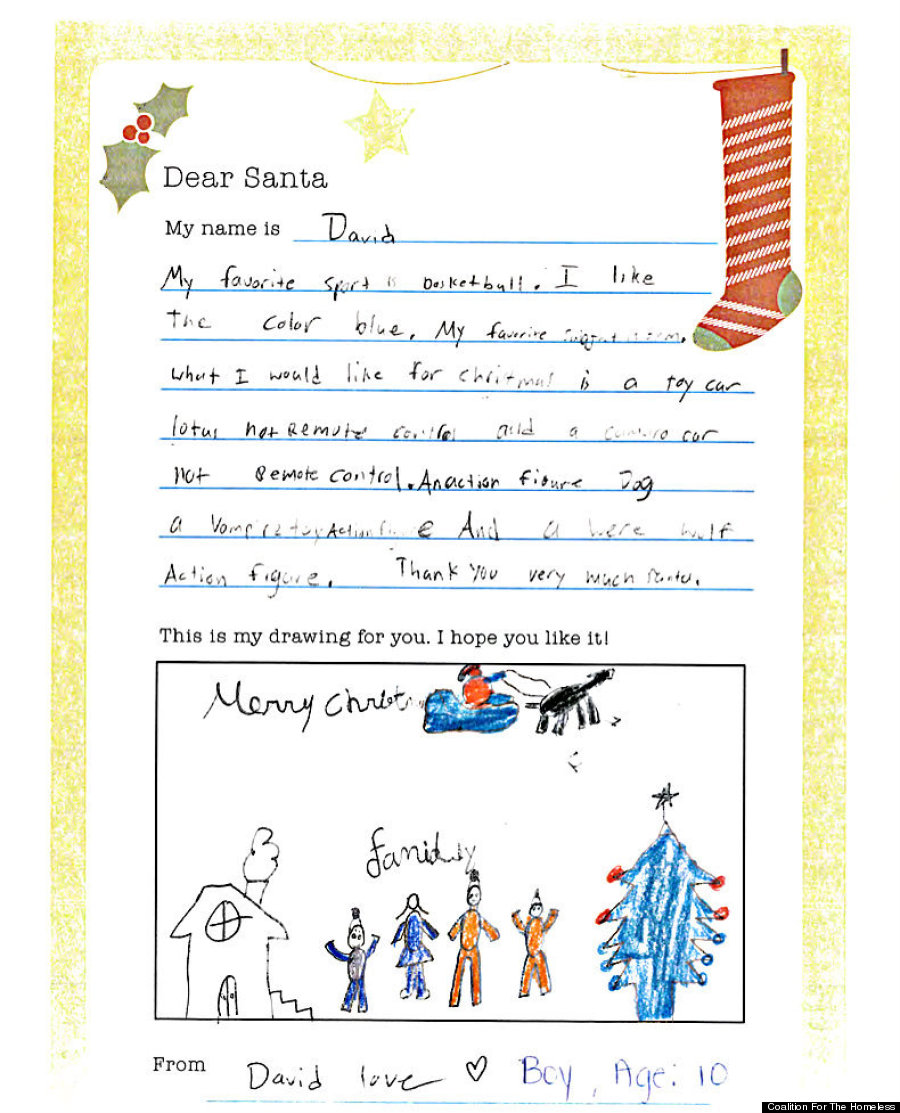 Dear Santa
My name is David
My favorite sport is basketball. I like
The color blue. My favorite
what I would like for christmas is a toy car
lotus not Remote control and a camaro car
not Remote control. An action figure Dog
a Vampire toy Action figure And a were wolf
Action figure. Thank You very much santa.
This is my drawing for you. I hope you like it!
Merry Christ
family
From David love ♡ Boy, Age: 10
Coalition For The Homeless